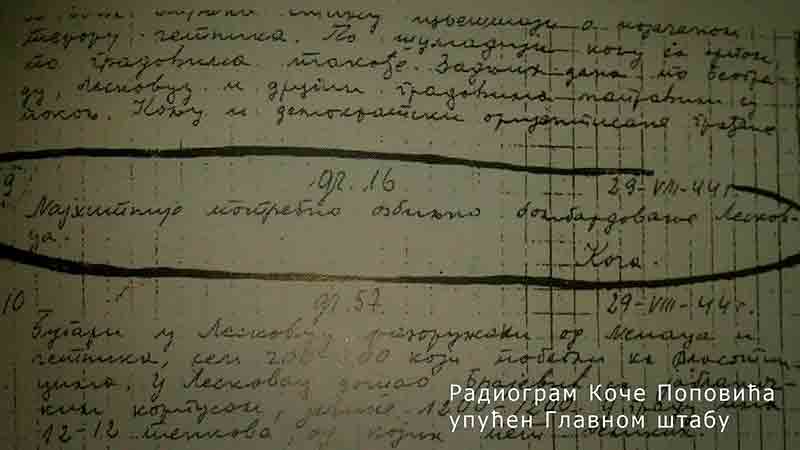 терору четника. По Шумадији кољу са
по градовима такође. Задњих дана по Београ-
ду, Лесковцу и другим градовима направили су
покољ. Кољу и демократски оријентисане грађане
9 др. 16 29-VIII-44 г.
Најхитније потребно озбиљно бомбардовање Лесков-
ца.
Коча.
10 др. 57 29-VIII-44 г.
Бугари у Лесковцу разоружани од Немаца и
четника, сем 200-300 који побегли ка Власотин-
цима. У Лесковац дошао
корпусом,
12-12 тенкова, од којих
Радиограм Коче Поповића
упућен Главном штабу